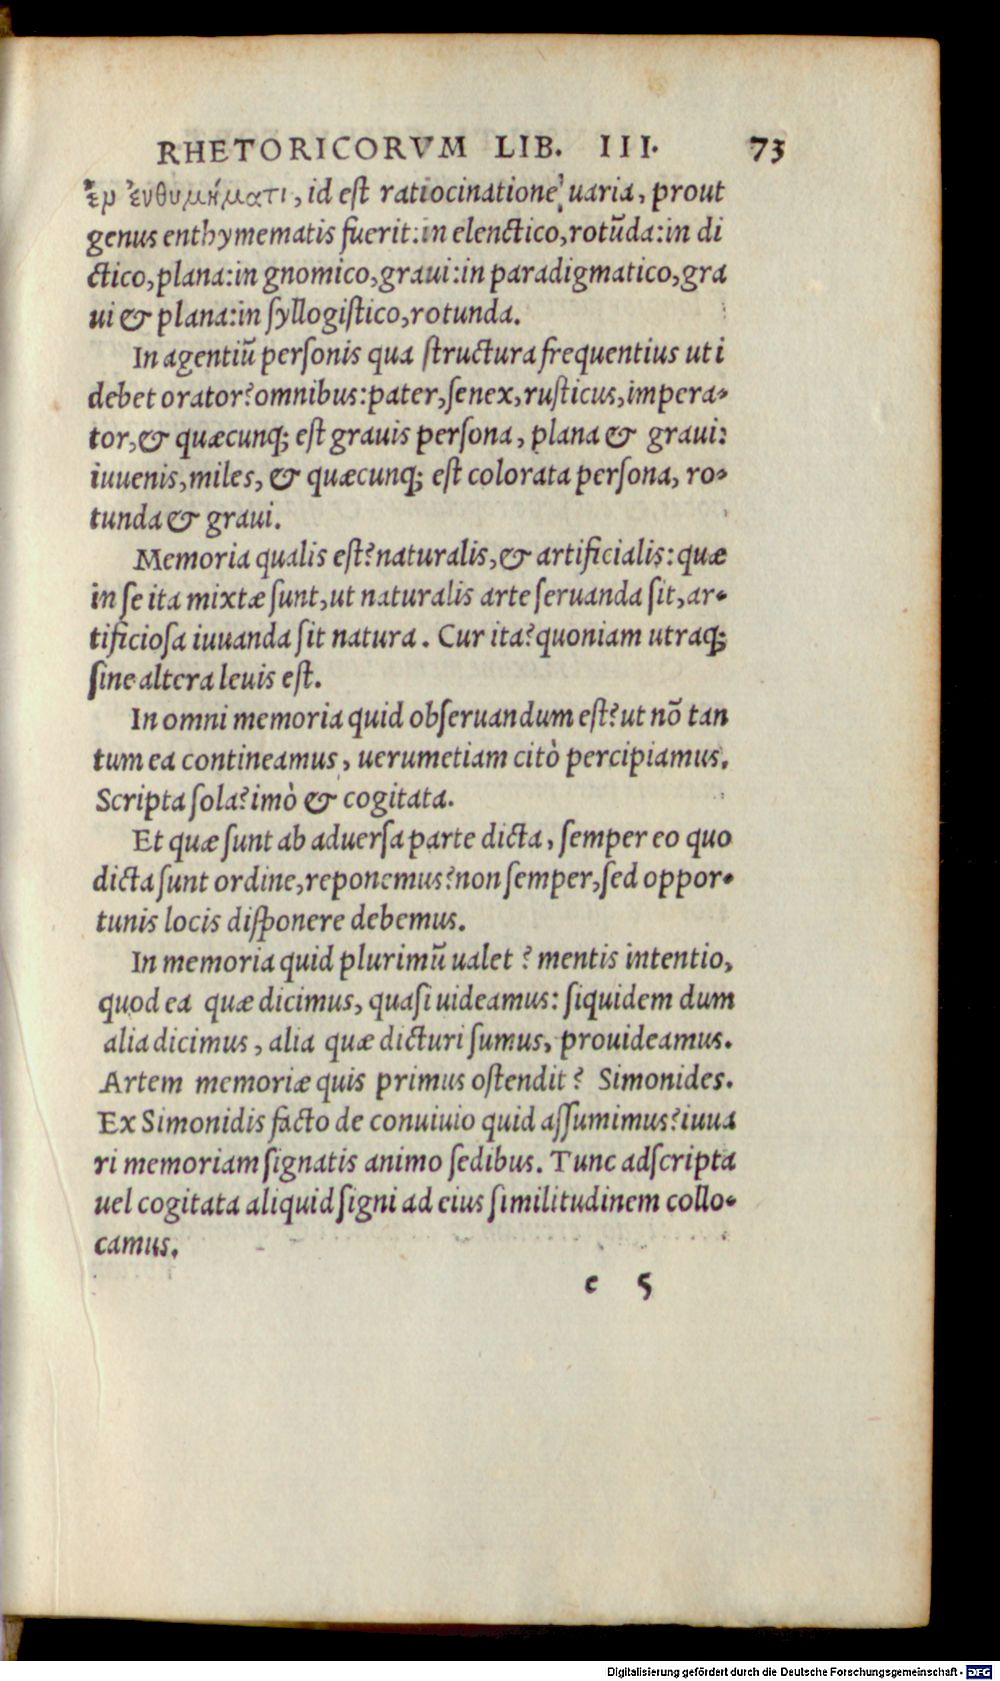 RHETORICORVM LIB. III. 73
ἐν ἐνθυμήματι, id eſt ratiocinatione, uaria, prout
genus enthymematis fuerit: in elenctico, rotūda: in di
ctico, plana: in gnomico, graui: in paradigmatico, gra
ui & plana: in ſyllogiſtico, rotunda.
In agentiū perſonis qua ſtructura frequentius uti
debet orator? omnibus: pater, ſenex, ruſticus, impera-
tor, & quæcunq; eſt grauis perſona, plana & graui:
iuuenis, miles, & quæcunq; eſt colorata perſona, ro-
tunda & graui.
Memoria qualis eſt? naturalis, & artificialis: quæ
in ſe ita mixtæ ſunt, ut naturalis arte ſeruanda ſit, ar-
tificioſa iuuanda ſit natura. Cur ita? quoniam utraq;
ſine altera leuis eſt.
In omni memoria quid obſeruandum eſt? ut nō tan
tum ea contineamus, uerumetiam citò percipiamus.
Scripta ſola? imò & cogitata.
Et quæ ſunt ab aduerſa parte dicta, ſemper eo quo
dicta ſunt ordine, reponemus? non ſemper, ſed oppor-
tunis locis diſponere debemus.
In memoria quid plurimū ualet? mentis intentio,
quod ea quæ dicimus, quaſi uideamus: ſiquidem dum
alia dicimus, alia quæ dicturi ſumus, prouideamus.
Artem memoriæ quis primus oſtendit? Simonides.
Ex Simonidis facto de conuiuio quid aſſumimus? iuua
ri memoriam ſignatis animo ſedibus. Tunc adſcripta
uel cogitata aliquid ſigni ad eius ſimilitudinem collo-
camus.
e 5
Digitalisierung gefördert durch die Deutsche Forschungsgemeinschaft - DFG